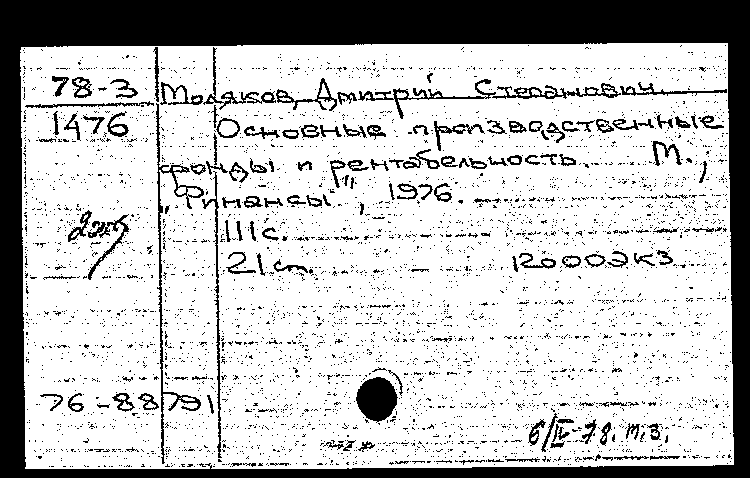 78-3 Моляков, Дмитрий Степанович.
1476 Основные производственные
фонды и рентабельность. М.,
„Финансы", 1976.
2экз
111с.
21 см. 12000экз
76-88791
6/IV-78. т.з.